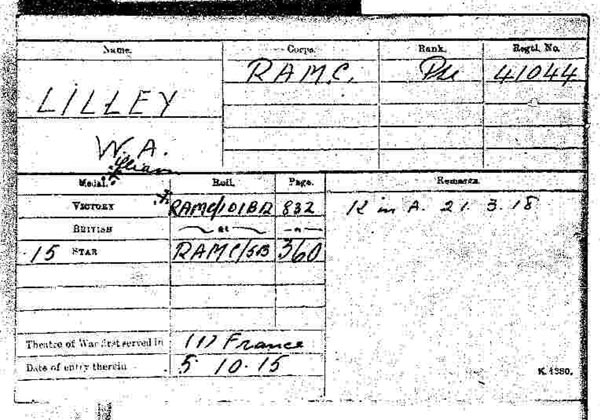 Name. Corps. Rank. Regtl. No.
LILLEY RAMC. Pte 41044
W. A.
illiam
Medal. Roll. Page. Remarks.
VICTORY RAMC/101B12 832 K in A. 21.3.18
BRITISH
15 STAR RAMC/5B 360
Theatre of War first served in (1) France
Date of entry therein 5.10.15
K. 1380.